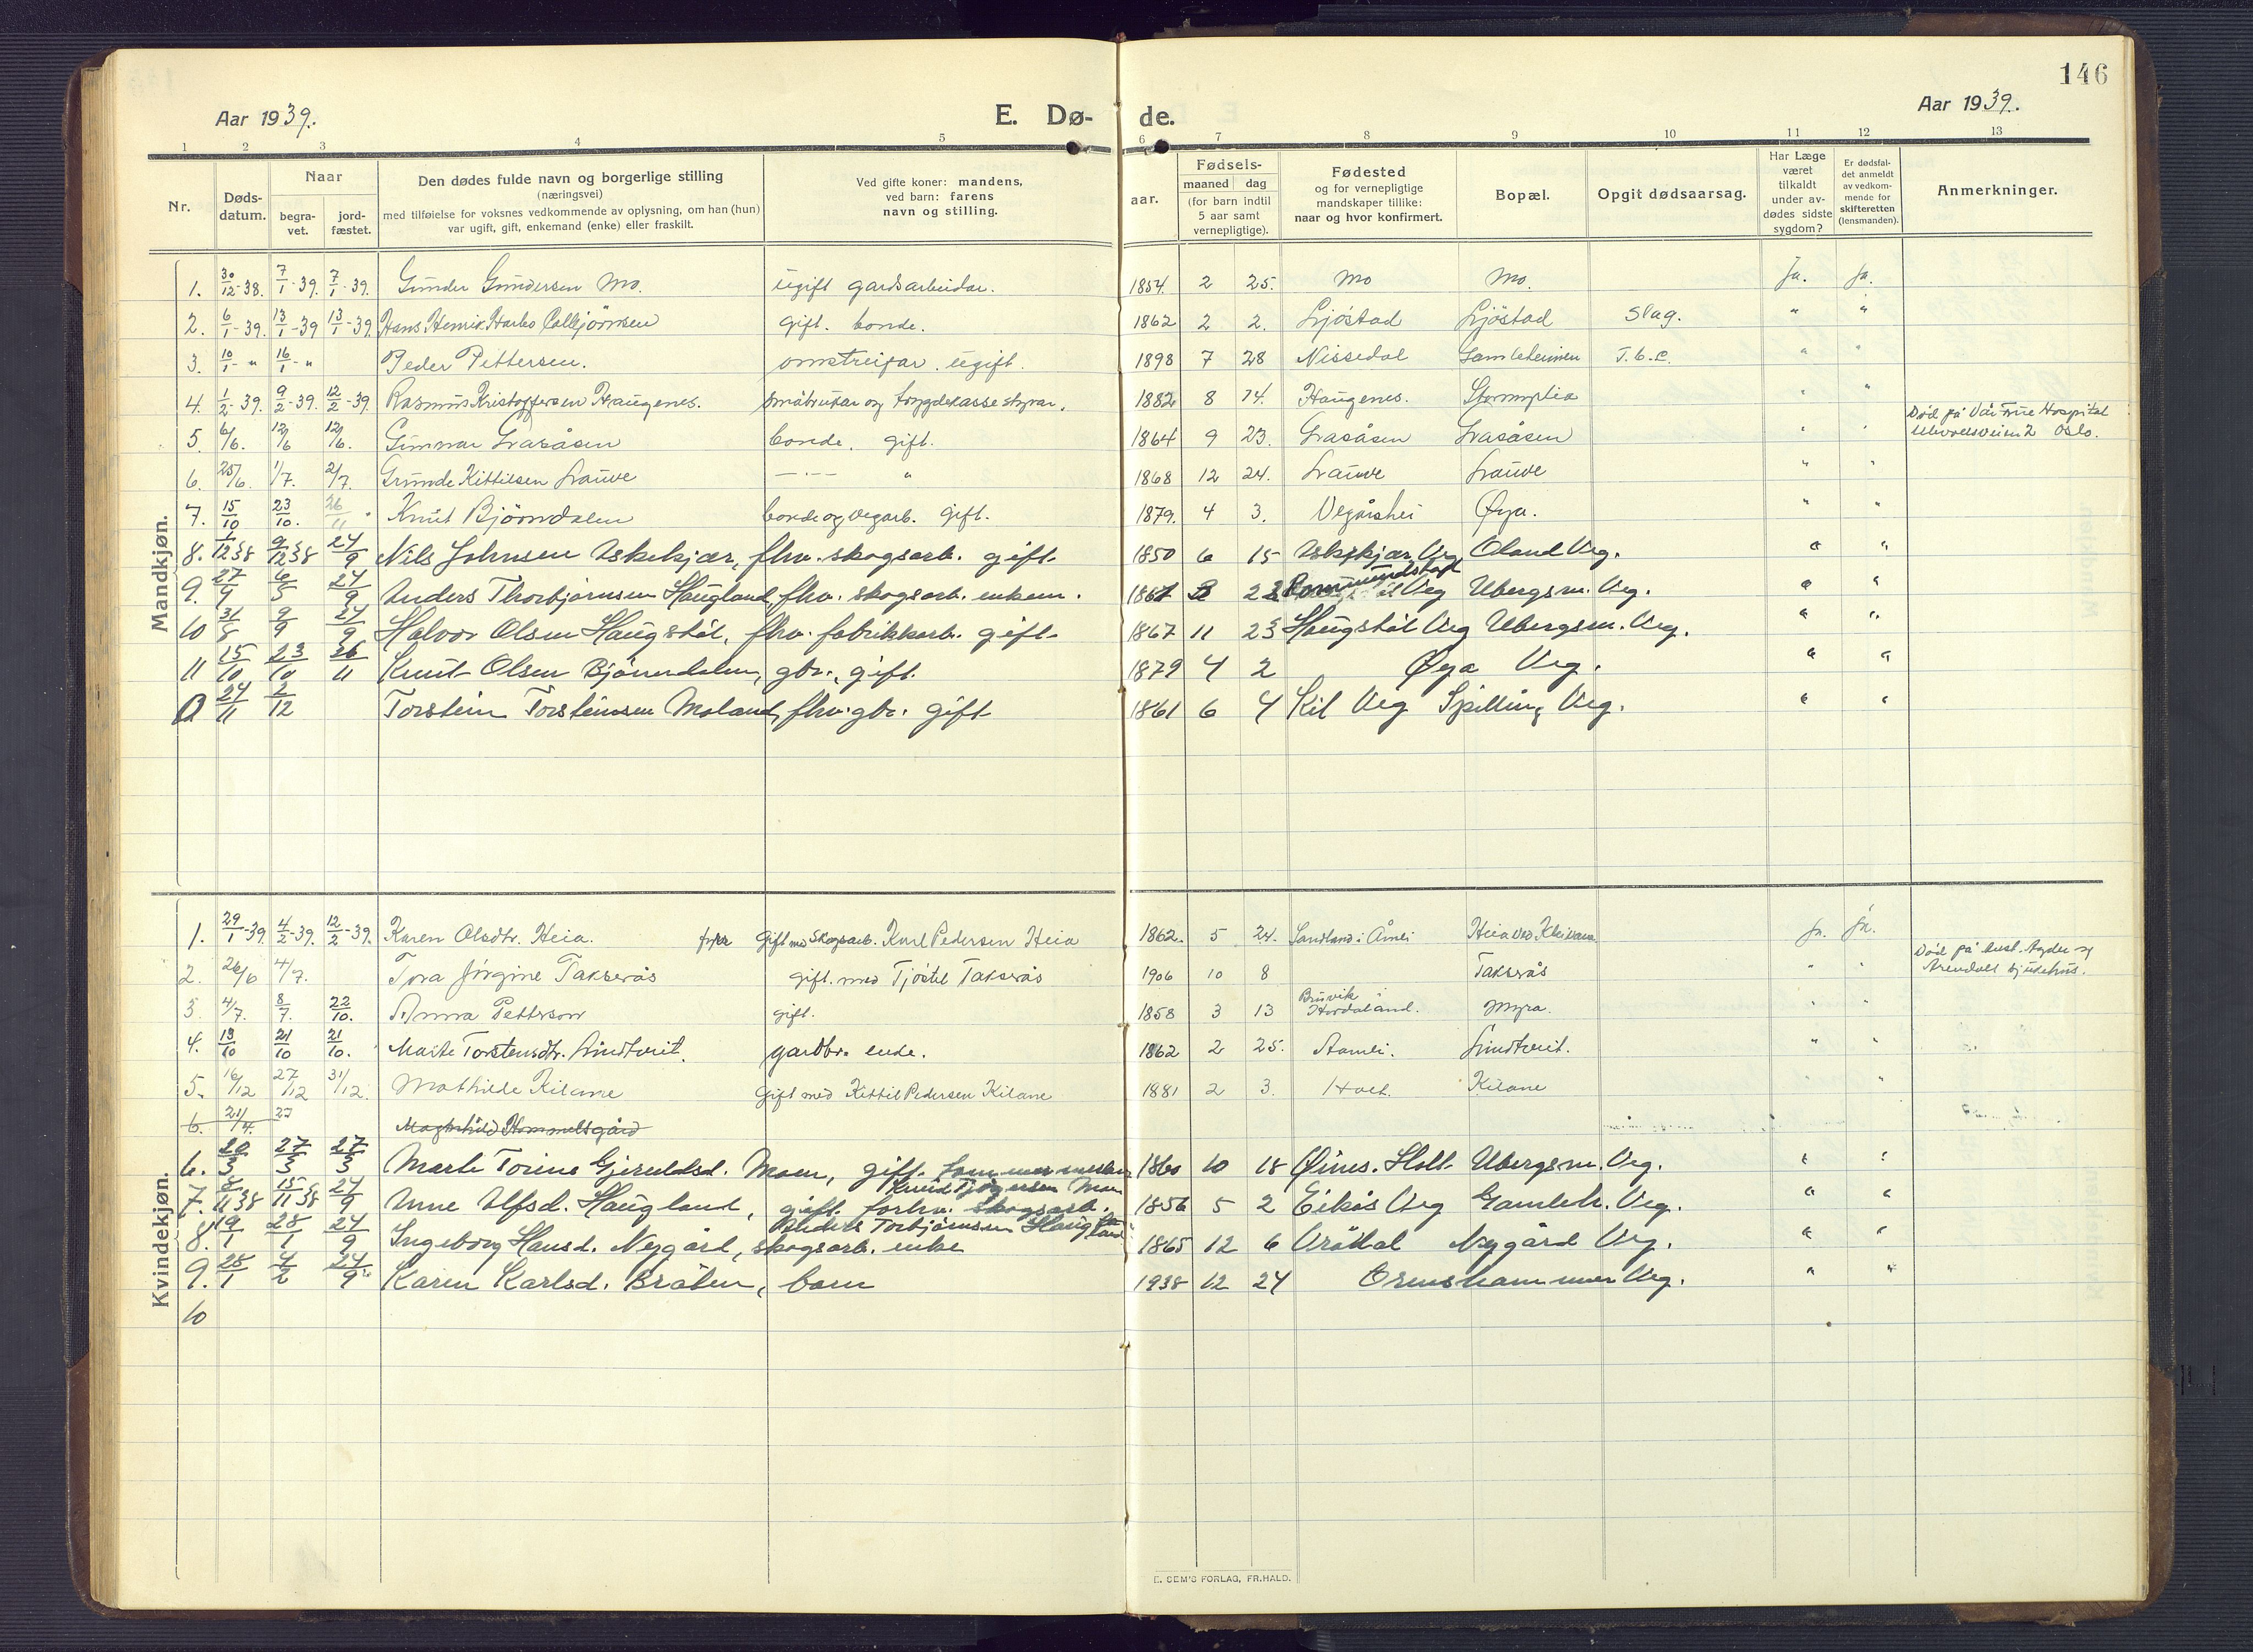 146
Aar 1939.
E. Dø-
de.
Aar 1939.
1 2 3 4 5 6 7 8 9 10 11 12 13
Nr.
Døds-
datum.
Naar
begra-
vet.
jord-
fæstet.
Den dødes fulde navn og borgerlige stilling
(næringsvei)
med tilføielse for voksnes vedkommende av oplysning, om han (hun)
var ugift, gift, enkemand (enke) eller fraskilt.
Ved gifte koner: mandens,
ved barn: farens
navn og stilling.
aar.
Fødsels-
maaned dag
(for barn indtil
5 aar samt
vernepligtige).
Fødested
og for vernepligtige
mandskaper tillike:
naar og hvor konfirmert.
Bopæl.
Opgit dødsaarsag.
Har Læge
været
tilkaldt
under av-
dødes sidste
sygdom?
Er dødsfal-
det anmeldt
av vedkom-
mende for
skifteretten
(lensmanden).
Anmerkninger.
Mandkjøn.
1. 30/12-38. 7/1-39. 7/1-39. Gunder Gundersen Mo. ugift gardsarbeidar. 1854. 2 25. Mo Mo. Ja. Ja.
2. 6/1-39. 13/1-39 13/1-39. Hans Henrik gift. bonde. 1862 2 2. Ljöstad Ljöstad Slag. " "
3. 10/1-" 16/1-" Peder Pettersen. omstreifar. ugift. 1898 7 28 Nissedal Gamleheimen T.b.c. " "
4. 1/2-39. 9/2-39. 12/2-39 Rasmus Kristoffersen Haugenes. småbrukar og trygdekasse styrar. 1882 8 14. Haugenes. " "
5. 6/6. 12/6 12/6. Gunnar Lasåsen bonde. gift. 1864 9 23. Lasåsen Lasåsen " " Död på Vår Frue Hospital
Ullevoldsveien 2 Oslo.
6. 25/6. 1/7. 2/7. Grunde Kittilsen Lauve — " 1868 12 24. Lauve Lauve " "
7. 15/10 23/10. 26/11 Knut Bjørndalen bonde og vegarb. gift. 1879. 4 3. Vegårshei Øya. " "
8. 1/12 38 9/12 38 24/9 Nils Johnsen Askekjær, fhv. skogsarb. gift. 1850 6 15 Askekjær Veg Oland Veg. " "
9. 27/4 6/5 24/9 Anders Thorbjørnsen Haugland, fhv. skogsarb. enkem. 1867 2 Veg Ubergsm. Veg. " "
10 31/8 9/9 24/9 Halvor Olsen Haugstøl, fhv. fabrikkarb. gift. 1867 11 23 Haugstøl Veg Ubergsm. Veg. " "
11 15/10 23/10 26/11 Knut Olsen Bjørndalen, gbr., gift. 1879 4 2 Øya Veg. " "
24/11 2/12 Torstein Torsteinsen Moland, fhv. gbr. gift 1861 6 4 Kil Veg Spilling Veg. " "
Kvindekjøn.
1. 29/1-39. 4/2-39. 12/2-39. Karen Olsdtr. Heia. Gift med Skogsarb. Karl Pedersen Heia 1862. 5 24. Sandland i Åmli Heia ved Kleivane Ja. Ja.
2. 26/6 4/7. Tora Jørgine Takserås gift. med Tjöstel Takserås 1906 10 8 Takserås " " Död på Aust-Agder og
Arendals sjukehus.
3. 4/7. 8/7. 22/10. Anna Petterson gift. 1858 3 13 Bruvik
Hordaland. Myra. " "
4. 13/10 21/10 21/10. Marte Torstensdtr. Lindtveit. gardbr. enke. 1862 2 25. Aamli. Lindtveit. " "
5. 16/12 27/12 31/12. Mathilde Kilane Gift med Kittil Pedersen Kilane 1881 2 3. Holt. Kilane " "
6. 21/4. 27 Magnhild Hommelsgård
6. 20/3 27/3 27/3 Marte Torine Gjeruldsd. Moen, gift.
1860 10 18 Øines. Holt Ubergsm. Veg. " "
7. 8/11 38 15/11 38 24/9 Anne Alfsd. Haugland, gift. forhv. skogsarb.
Anders Torbjørnsen Haugland 1856 5 2 Eikås Veg Gamleh. Veg. " "
8. 19/1 28/1 24/9 Ingeborg Hansd. Nygård, skogsarb. enke 1865 12 6 Nygård Veg. " "
9. 28/1 4/2 24/9 Karen Karlsd. Bråten, barn 1938 12 24 Ormshammer Veg. " "
10
E. SEM'S FORLAG, FR.HALD.